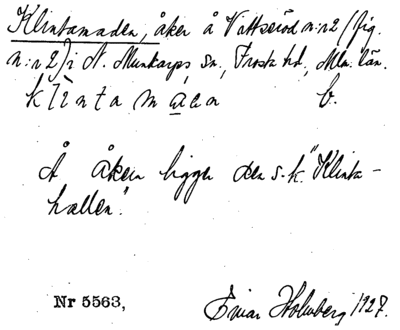 Klintamaden, åker å Vattseröd n:r 2 (fig.
n:r 2) i N. Munkarps sn., Frosta hd, Mlm. län.
klintamáən b.
Å åkern ligger den s.k. "Klinta-
hallen".
Nr 5563, Einar Holmberg 1927.